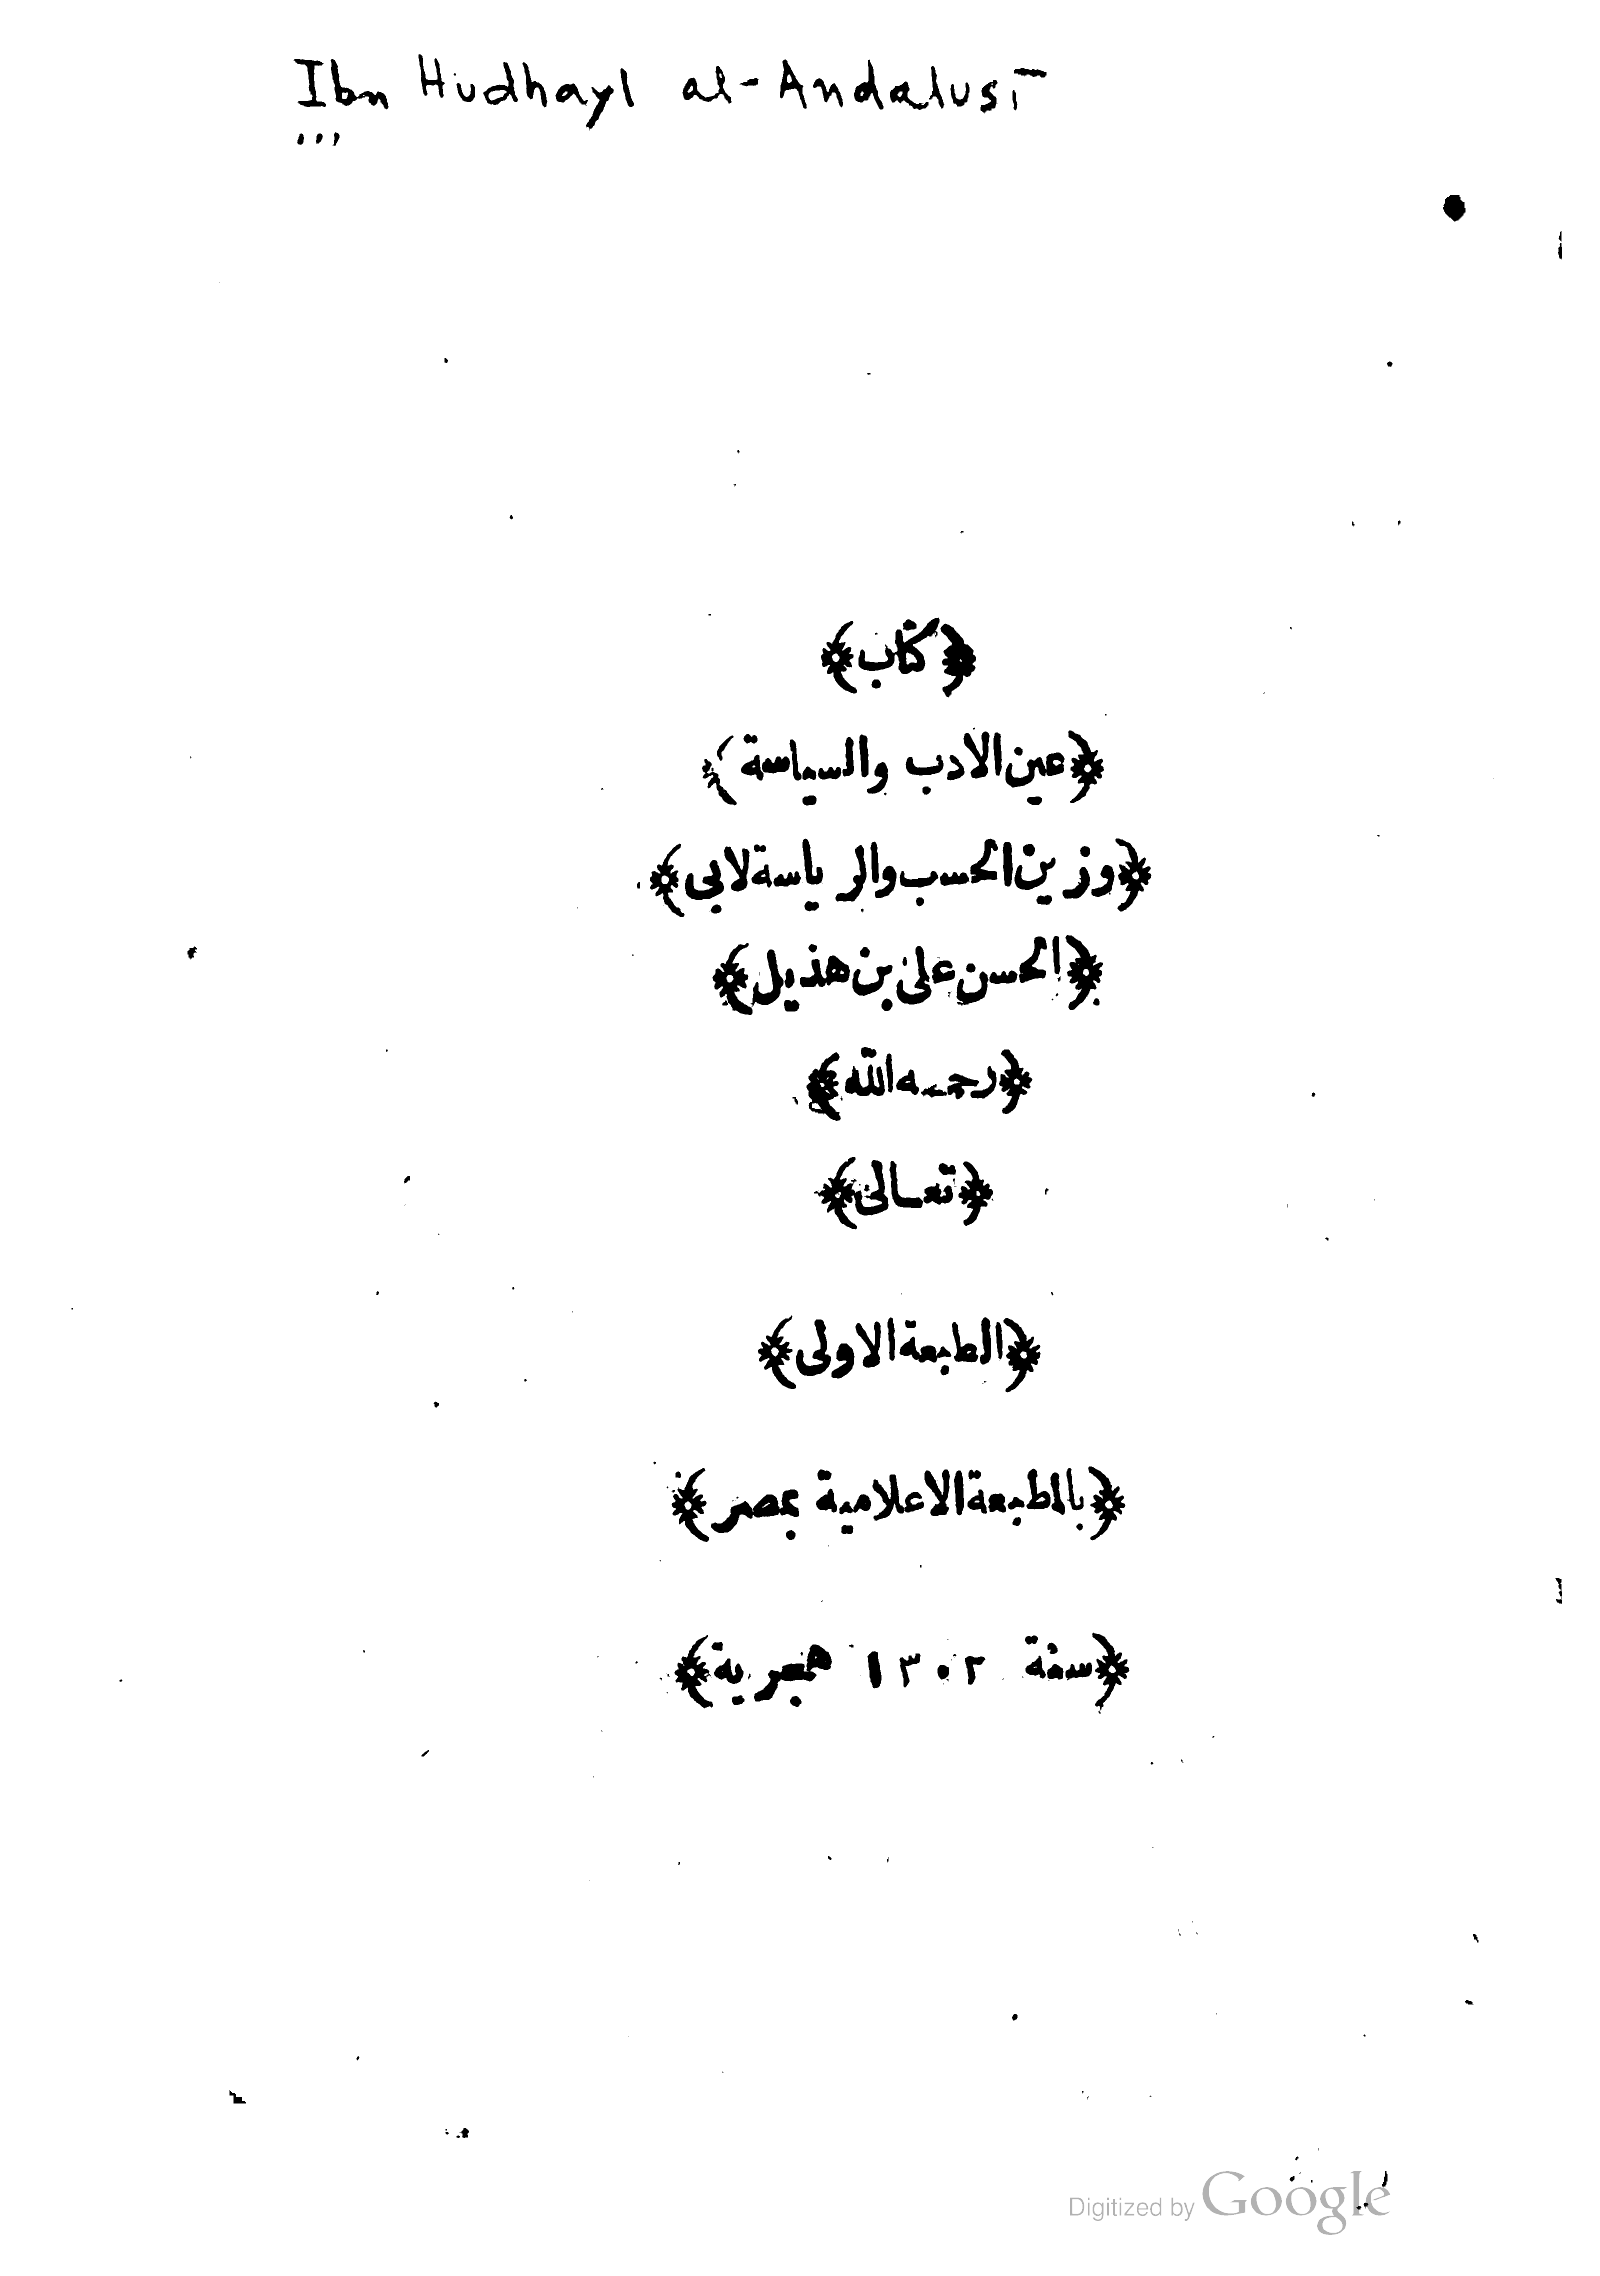 Ibn Hudhayl al-Andalusī
﴿كتاب﴾
﴿عين الادب والسياسة﴾
﴿وزين الحسب والرياسة لابى﴾
﴿الحسن على بن هذيل﴾
﴿رحمه الله﴾
﴿تعالى﴾
﴿الطبعة الاولى﴾
﴿بالمطبعة الاعلامية بمصر﴾
﴿سنة ١٣٠٢ هجرية﴾
Digitized by Google